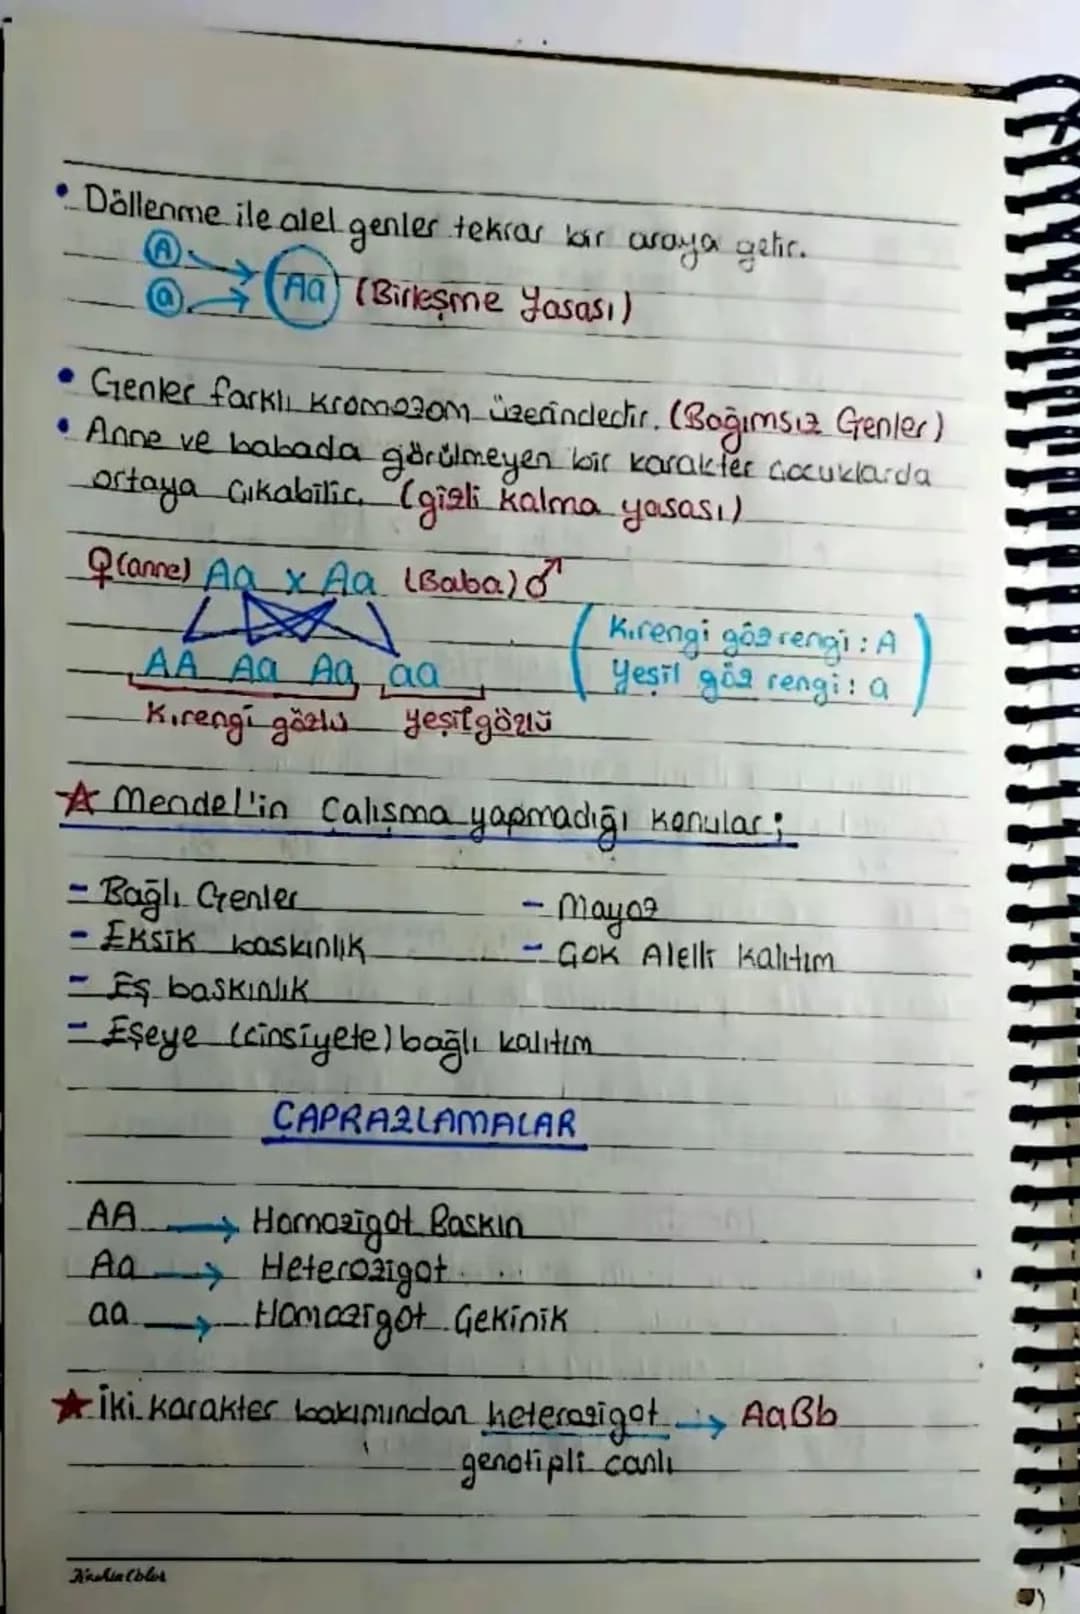 • Döllenme ile alel genler tekrar bir araya gelir.
A
a
Aa (Birleşme Yasası)
• Genler farklı kromozom üzerindedir. (Bağımsız Genler)
• Anne ve babada görülmeyen bir karakter çocuklarda
ortaya çıkabilir. (gizli kalma yasası)
♀(anne) Aa x Aa (Baba) ♂
K.rengi göz rengi : A
Yeşil göz rengi : a
AA Aa Aa aa
K.rengi gözlü yeşil gözlü
★ Mendel'in Çalışma yapmadığı konular ;
- Bağlı Genler
- Mayoz
- Eksik baskınlık
- Çok Alelli kalıtım
- Eş baskınlık
- Eşeye (cinsiyete) bağlı kalıtım
ÇAPRAZLAMALAR
AA → Homozigot Baskın
Aa → Heterozigot
aa → Homozigot Çekinik
★ İki karakter bakımından heterozigot → AaBb
genotipli canlı